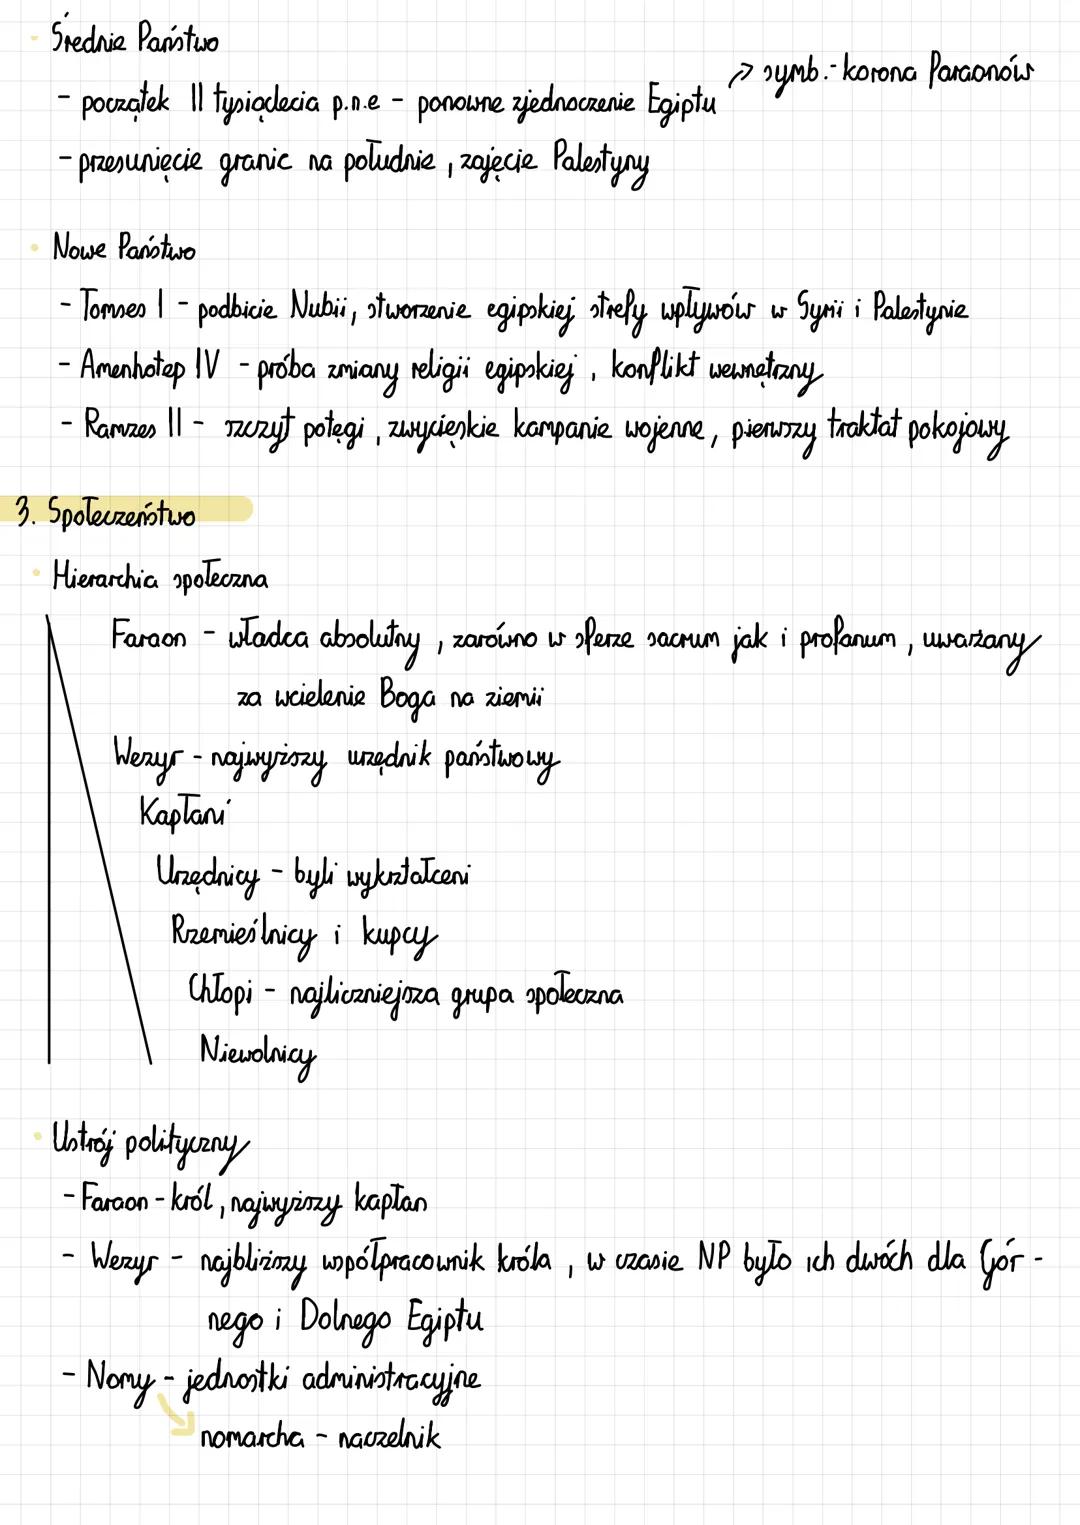 Średnie Państwo
→ symb.- korona Faraonów
- początek II tysiąclecia p.n.e - ponowne zjednoczenie Egiptu
- przesunięcie granic na południe, zajęcie Palestyny
Nowe Państwo
- Tomses I - podbicie Nubii, stworzenie egipskiej strefy wpływów w Syrii i Palestynie
- Amenhotep IV - próba zmiany religii egipskiej, konflikt wewnętrzny
- Ramzes II - szczyt potęgi, zwycięskie kampanie wojenne, pierwszy traktat pokojowy
3. Społeczeństwo
Hierarchia społeczna
Faraon - władca absolutny, zarówno w sferze sacrum jak i profanum, uważany
za wcielenie Boga na ziemii
Wezyr - najwyższy urzędnik państwowy
Kapłani
Urzędnicy - byli wykształceni
Rzemieślnicy i kupcy
Chłopi - najliczniejsza grupa społeczna
Niewolnicy
Ustrój polityczny
- Faraon - król, najwyższy kapłan
- Wezyr - najbliższy współpracownik króla, w czasie NP było ich dwóch dla Gór-
nego i Dolnego Egiptu
- Nomy - jednostki administracyjne
nomarcha - naczelnik